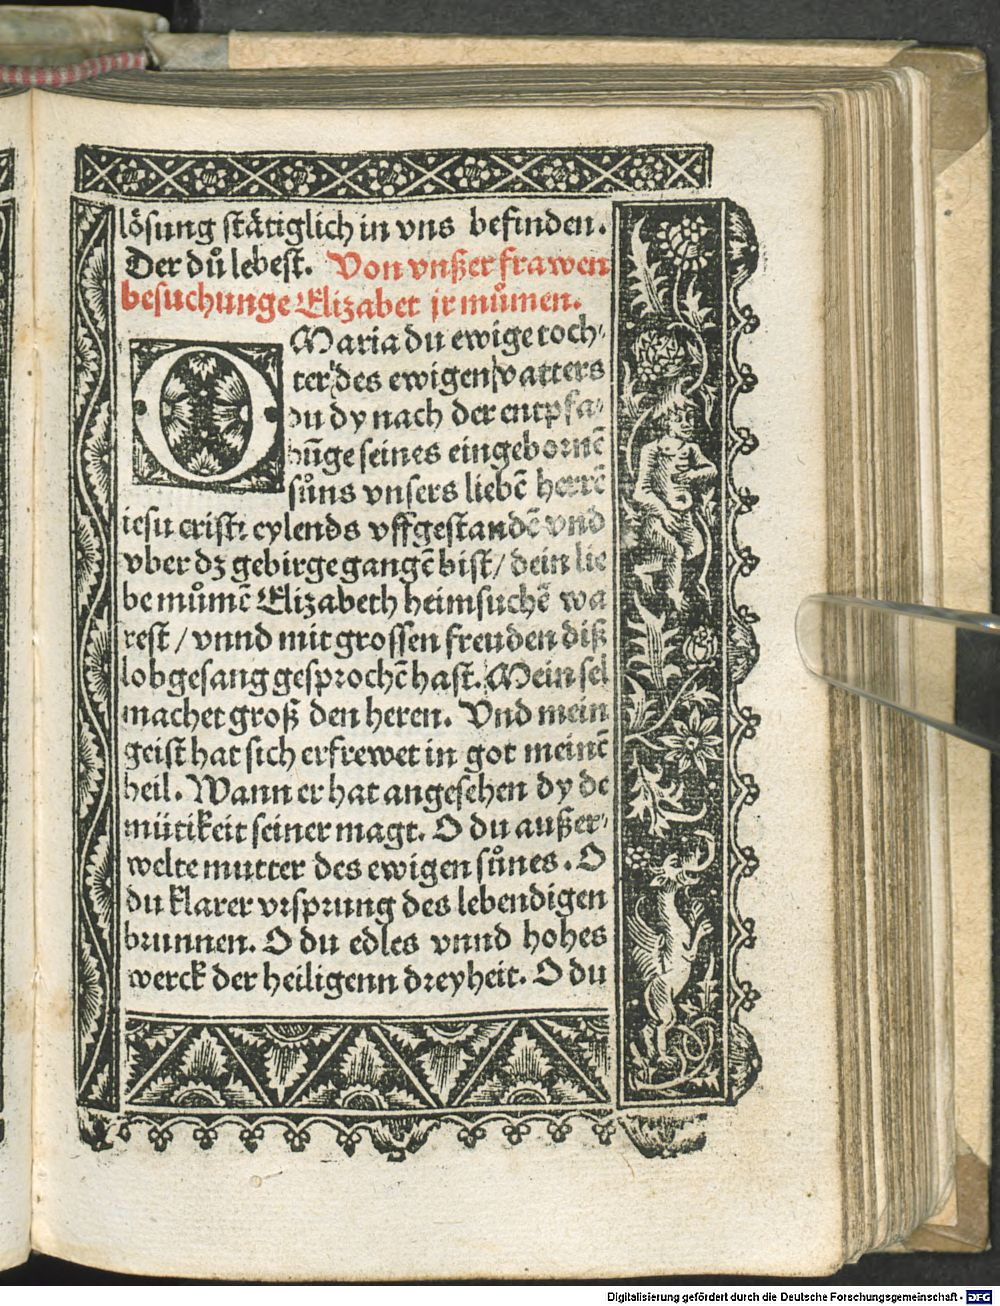 lösung stätiglich in vns befinden.
Der dů lebest. Von vnßer frawen
besuchunge Elizabet ir můmen.
O Maria du ewige toch⸗
ter des ewigen vatters
du dy nach der entpfa⸗
hūge seines eingebornē
sůns vnsers liebē herrē
iesu cristi eylends vffgestandē vnd
vber dz gebirge gangē bist / dein lie
be můmē Elizabeth heimsuchē wa
rest / vnnd mit grossen freuden diß
lobgesang gesprochē hast. Mein sel
machet groß den heren. Vnd mein
geist hat sich erfrewet in got meinē
heil. Wann er hat angesehen dy de
mütikeit seiner magt. O du außer⸗
welte mutter des ewigen sůnes. O
du klarer vrsprung des lebendigen
brunnen. O du edles vnnd hohes
werck der heiligenn dreyheit. O du
Digitalisierung gefördert durch die Deutsche Forschungsgemeinschaft - DFG